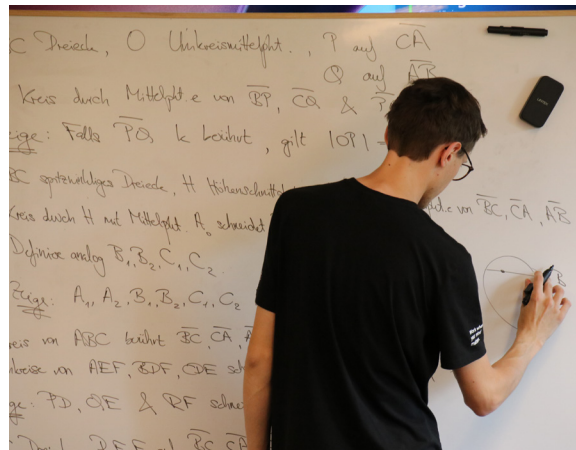 C Dreieck, O Umkreismittelpkt., P auf CA
Q auf AB
Kreis durch Mittelpkt.e von BP, CQ & P
eige: Falls PQ k berührt, gilt |OP| =
BC spitzwinkliges Dreieck, H Höhenschnittpkt
von BC, CA, AB
Kreis durch H mit Mittelpkt. A₀ schneidet
Definiere analog B₁, B₂, C₁, C₂.
B
Zeige: A₁, A₂, B₁, B₂, C₁, C₂
reis von ABC berührt BC, CA, A
von AEF, BDF, CDE
ge: PD, QE & RF schnei